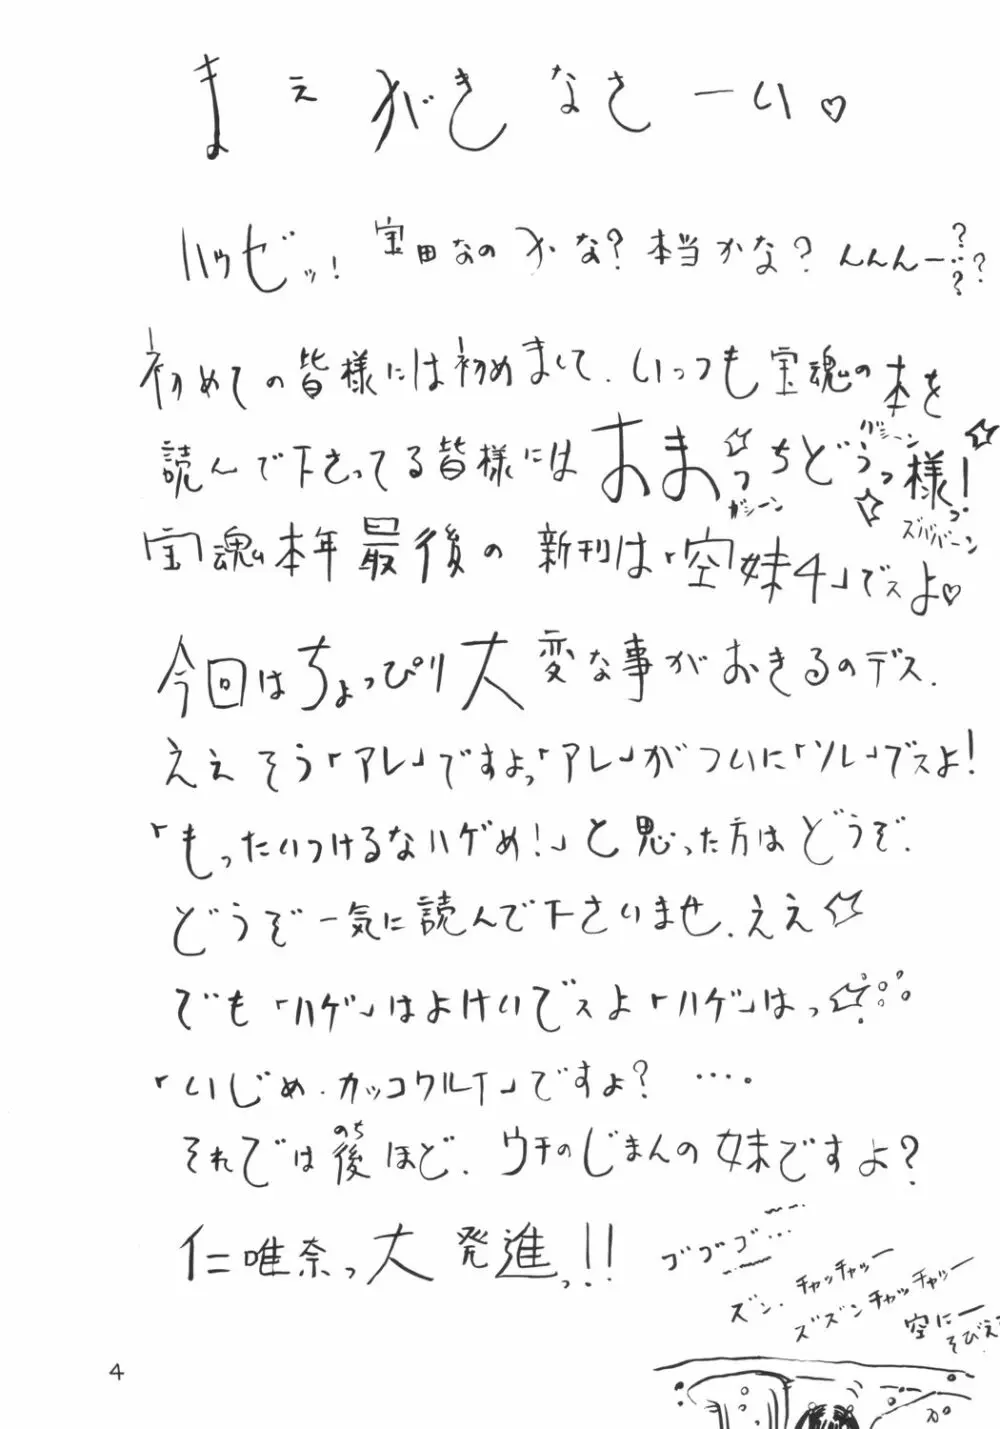 まえがきなさーい♡
ハゥゼッ! 宝田なのかな?本当かな?んんんー…???
初めての皆様には初めまして.いっつも宝魂の本を
読んで下さってる皆様にはおまっちどうっ様っ!
ガシーン
ガシーン
ズババーン
宝魂本年最後の新刊は「空妹4」でスよ♡
今回はちょっぴり大変な事がおきるのデス.
ええそう「アレ」ですよっ「アレ」がついに「ソレ」でスよ!
「もったいつけるなハゲめ!」と思った方はどうぞ.
どうぞ一気に読んで下さいませ.ええ☆
でも「ハゲ」はよけいでスよ「ハゲ」はっ☆
「いじめ.カッコワルイ」ですよ?….
それでは後ほど.ウチのじまんの妹ですよ?
のち
仁唯奈っ大発進っ!!
ゴゴゴゴ…
ズン.チャッチャー
ズズンチャッチャッー
空にー
そびえ
4